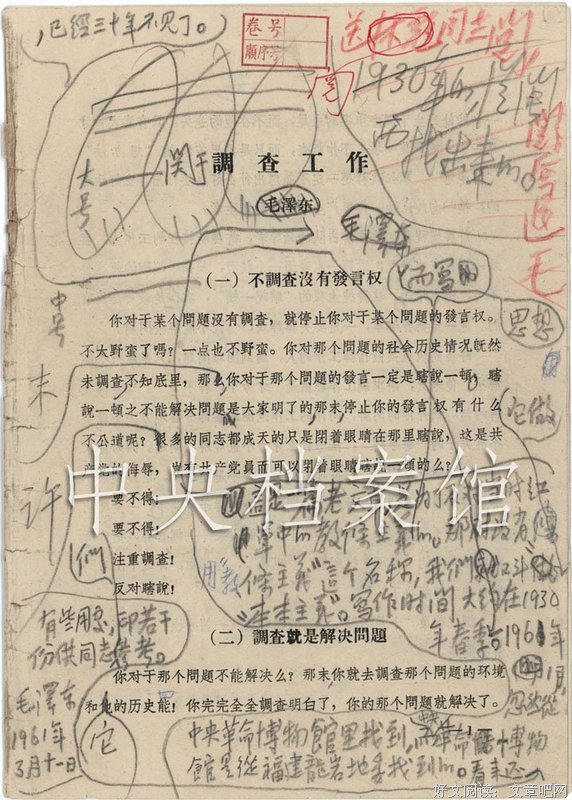 ，已經三十年不見了。
卷号
順序号
送林克同志
1930年的
找出来的。
用
大号
关于
調查工作
毛澤东
毛澤东
(一) 不調查沒有發言权
为而写的
思想
中号
你对于某个問題沒有調查，就停止你对于某个問題的發言权。
不太野蛮了嗎？一点也不野蛮。你对那个問題的社会历史情况旣然
未調查不知底里，那么你对于那个問題的發言一定是瞎說一頓，瞎
說一頓之不能解决問題是大家明了的，那末停止你的發言权有什么
不公道呢？很多的同志都成天的只是閉着眼睛在那里瞎說，这是共
产党的侮辱，豈有共产党員而可以閉着眼睛瞎說一頓的么？
它做
末
要不得！
要不得！
注重調查！
反对瞎說！
中央档案馆
許
們
条主义”这个名称，我們叫它做
“本本主义”。写作时間大約在1930
年春季。1961年
有些用处，印若干
份供同志参考。
毛澤东
1961年
3月十一日
(二) 調查就是解决問題
你对于那个問題不能解决么？那末你就去調查那个問題的环境
和他的历史能！你完完全全調查明白了，你的那个問題就解决了。
它
中央革命博物館里找到，
館是從福建龍岩地委找到的。看来还
好文阅读：文章吧网